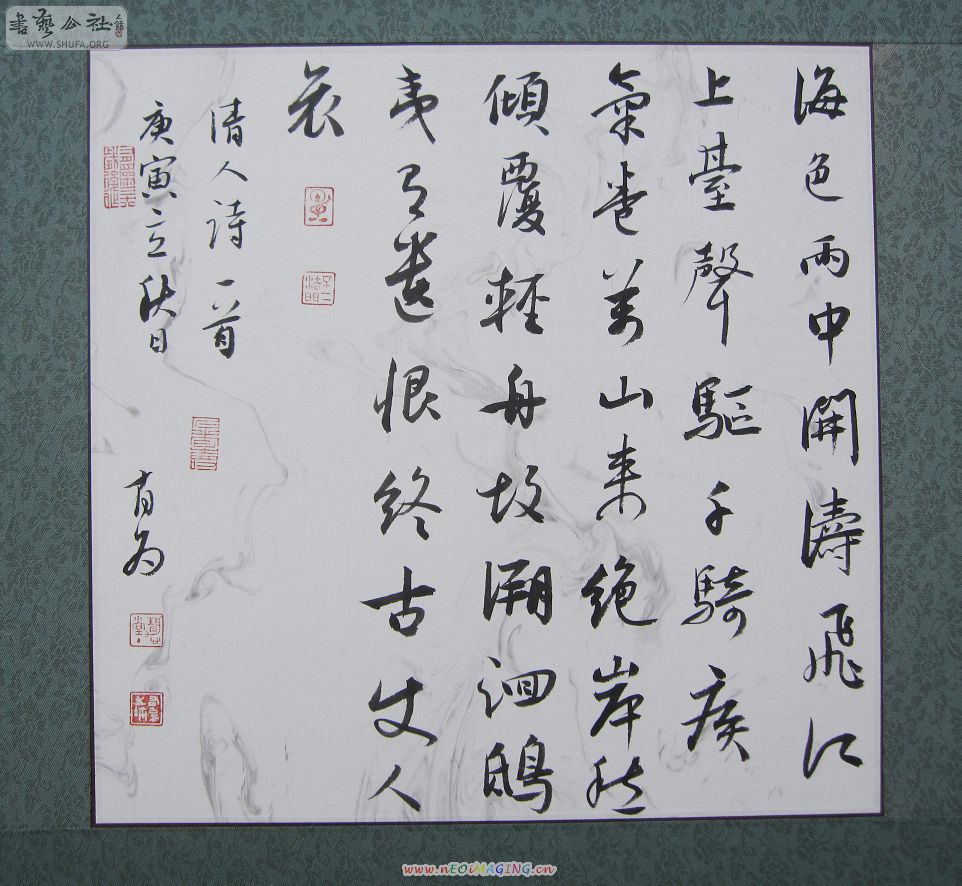 書藝公社
WWW.SHUFA.ORG
海色雨中開濤飛江
上臺聲驅千騎疾
氣卷萬山来絕岸愁
傾覆輕舟故溯洄鴟
夷有遺恨終古使人
哀
清人詩一首
庚寅立秋日 有为
www.nEOiMAGING.cn